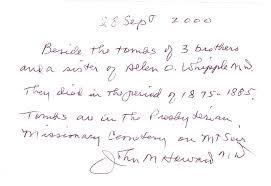 28 Sept 2000
Beside the tombs of 3 brothers
and a sister of Allen O. Whipple M.D.
They died in the period of 1875-1885.
Tombs are in the Presbyterian
Missionary Cemetery on Mt Seir
John M Howard M.D.